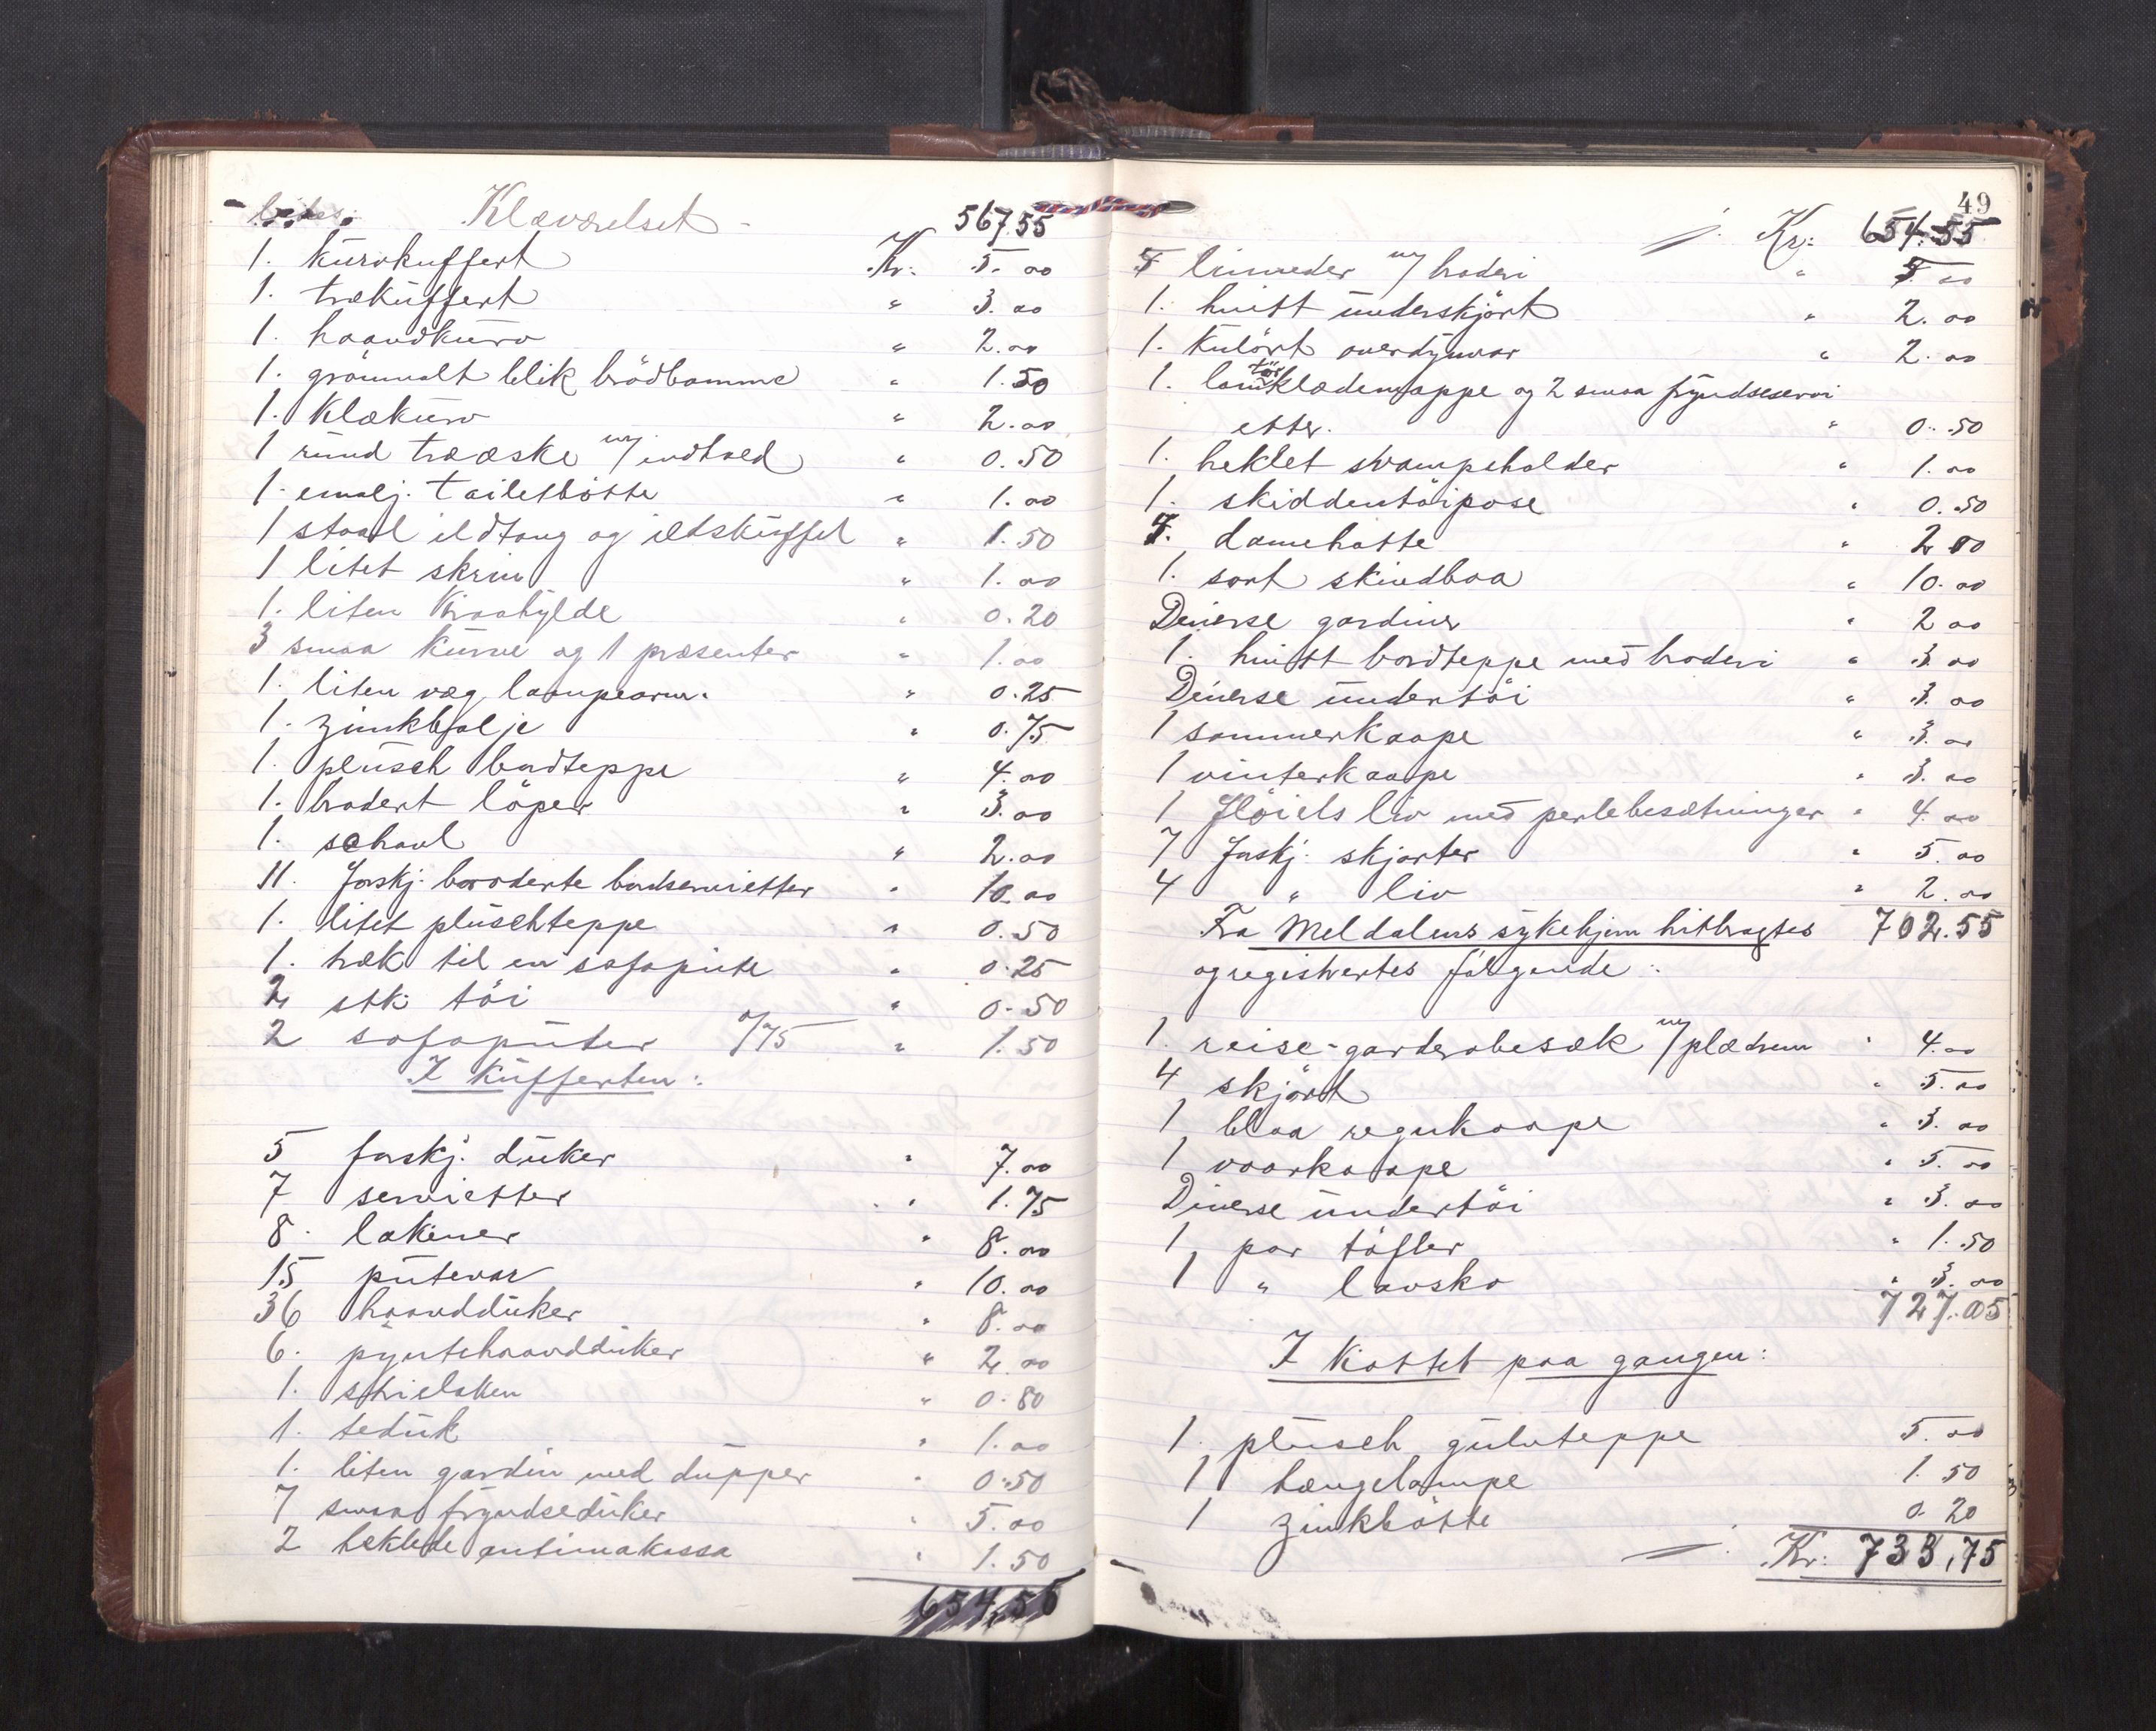 Klæværelset - 567.55
1. kurvkuffert Kr: 5.00
1. trækuffert " 3.00
1. haandkurv " 2.00
1. grönmalt blik brödbomme " 1.50
1. Klækurv " 2.00
1 rund trææske m/ indhold " 0.50
1. emalj. toiletbötte " 1.00
1 staal ildtang og ildskuffel " 1.50
1 litet skrin " 1.00
1. liten Kraahylde " 0.20
3 smaa kurve og 1 præsenter " 1.00
1. liten væg lampearm. " 0.25
1. zinkbalje " 0.75
1. plüsch bordteppe " 4.00
1. brodert löper " 3.00
1. schavl " 2.00
11. forskj. broderte bordservietter " 10.00
1. litet plüschteppe " 0.50
1. træk til en sofapute " 0.25
2 stk. töi " 0.50
2 sofaputer a/75 " 1.50
I Kufferten:
5 forskj. duker " 7.00
7 servietter " 1.75
8. lakener " 8.00
15 putevar " 10.00
36 haandduker " 8.00
6. pyntehaandduker " 2.00
1. strielaken " 0.80
1. teduk " 1.00
1. liten gardin med dupper " 0.50
7 smaa fryndseduker " 5.00
2 heklede antimakassa " 1.50
654.55
49
Kr: 654.55
5 linneder m/ broderi " 5.00
1. hvitt underskjört " 2.00
1. Kulört overdynvar " 2.00
1. lomme tör klædemappe og 2 smaa fryndseservi
etter. " 0.50
1. heklet svampeholder " 1.00
1. skiddentöipose " 0.50
7. damehatte " 2.00
1. sort skindboa " 10.00
Diverse gardiner " 2.00
1. hvitt bordteppe med broderi " 3.00
Diverse undertöi " 3.00
1 sommerkaape " 3.00
1 vinterkaape " 3.00
1 Flöiels liv med perlebesætninger " 4.00
7 forskj. skjorter " 5.00
4 " liv " 2.00
Fra Meldalens sykehjem hitbragtes 702.55
og registrertes fölgende:
1. reise-garderobesæk m/ plædrem " 4.00
4 skjört " 5.00
1 blaa regnkaape " 3.00
1 vaarkaape " 5.00
Diverse undertöi " 3.00
1 par töfler " 1.50
1 " lavsko " 3.00
727.05
I Kottet paa gangen:
1. plüsch gulvteppe 5.00
1 hængelampe 1.50
1 zinkbötte 0.20
Kr: 733,75